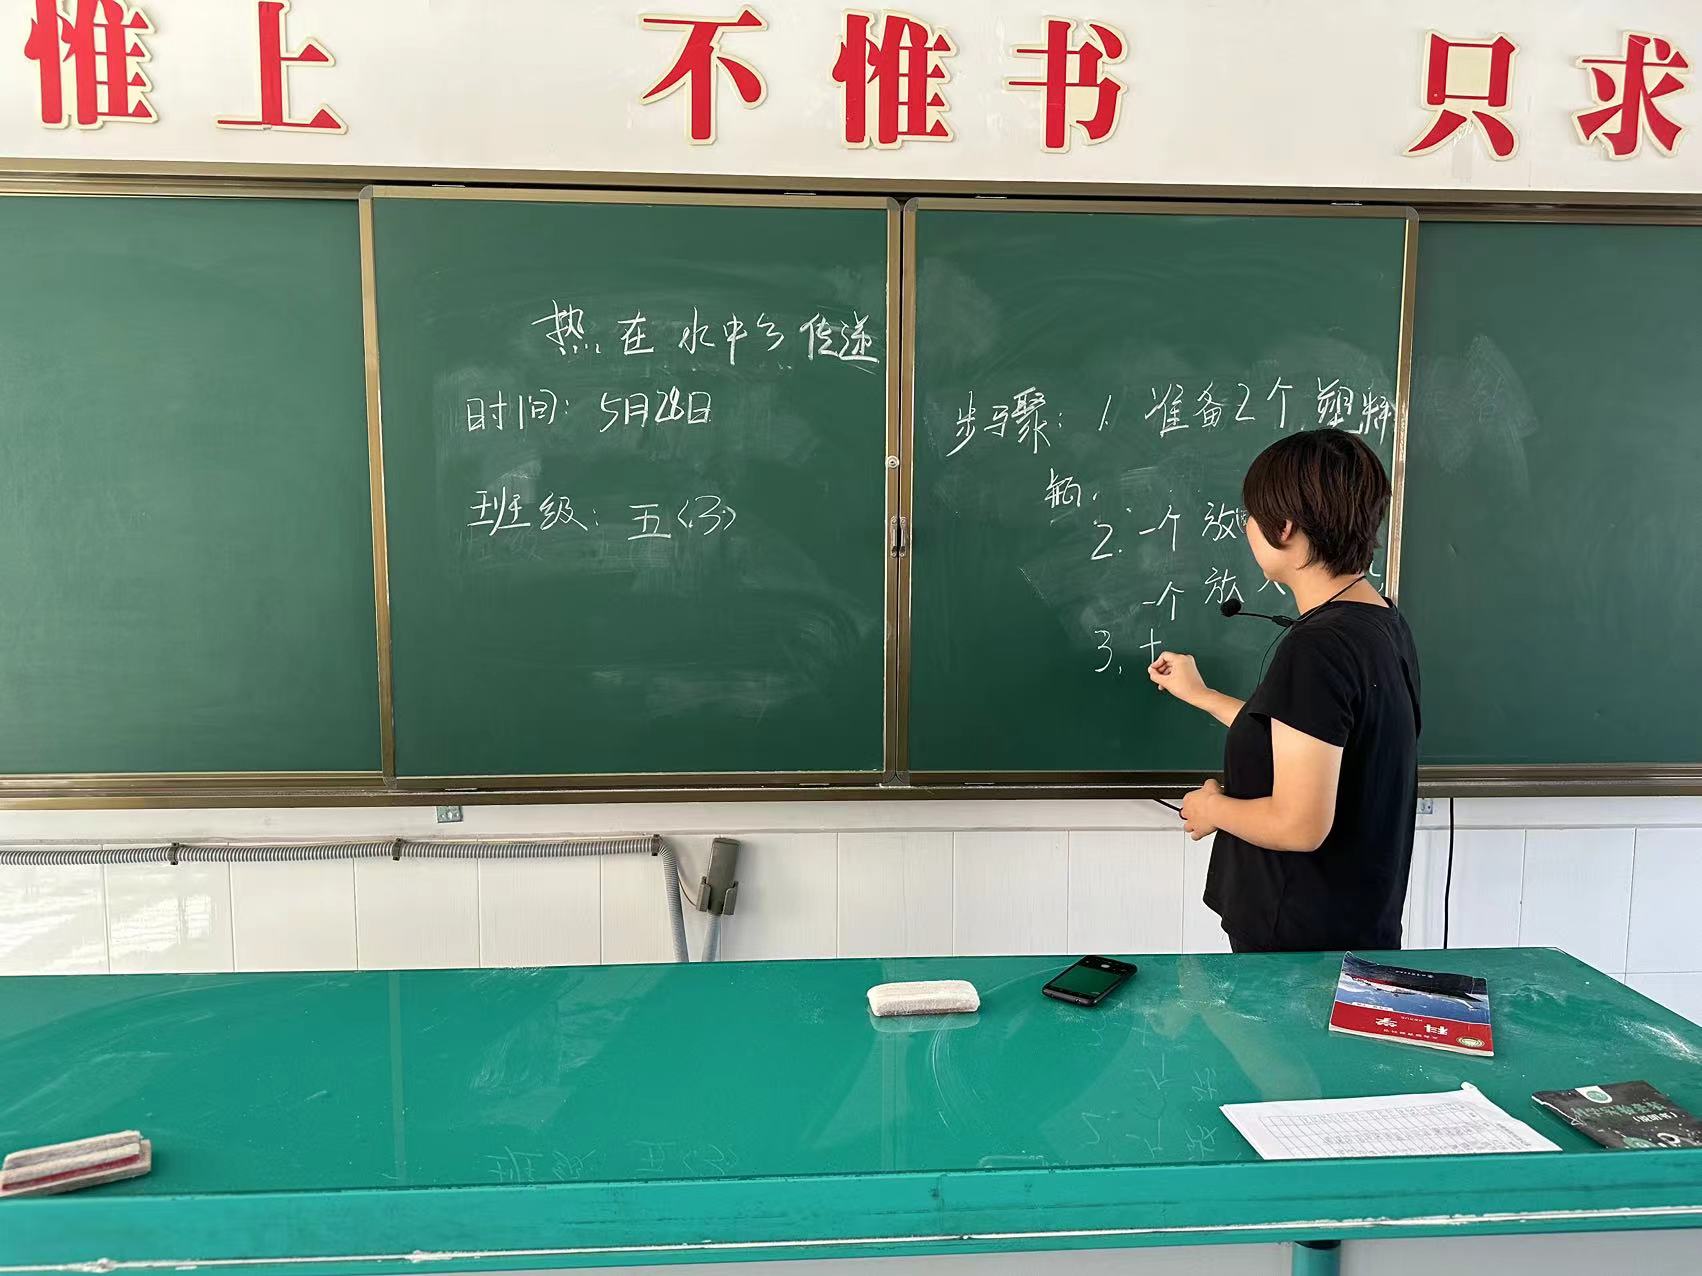 惟上 不惟书 只求
热在水中的传递
时间：5月28日
班级：五〈3〉
步骤：1. 准备2个塑料
瓶.
2. 一个放
一个放入
3.
科学